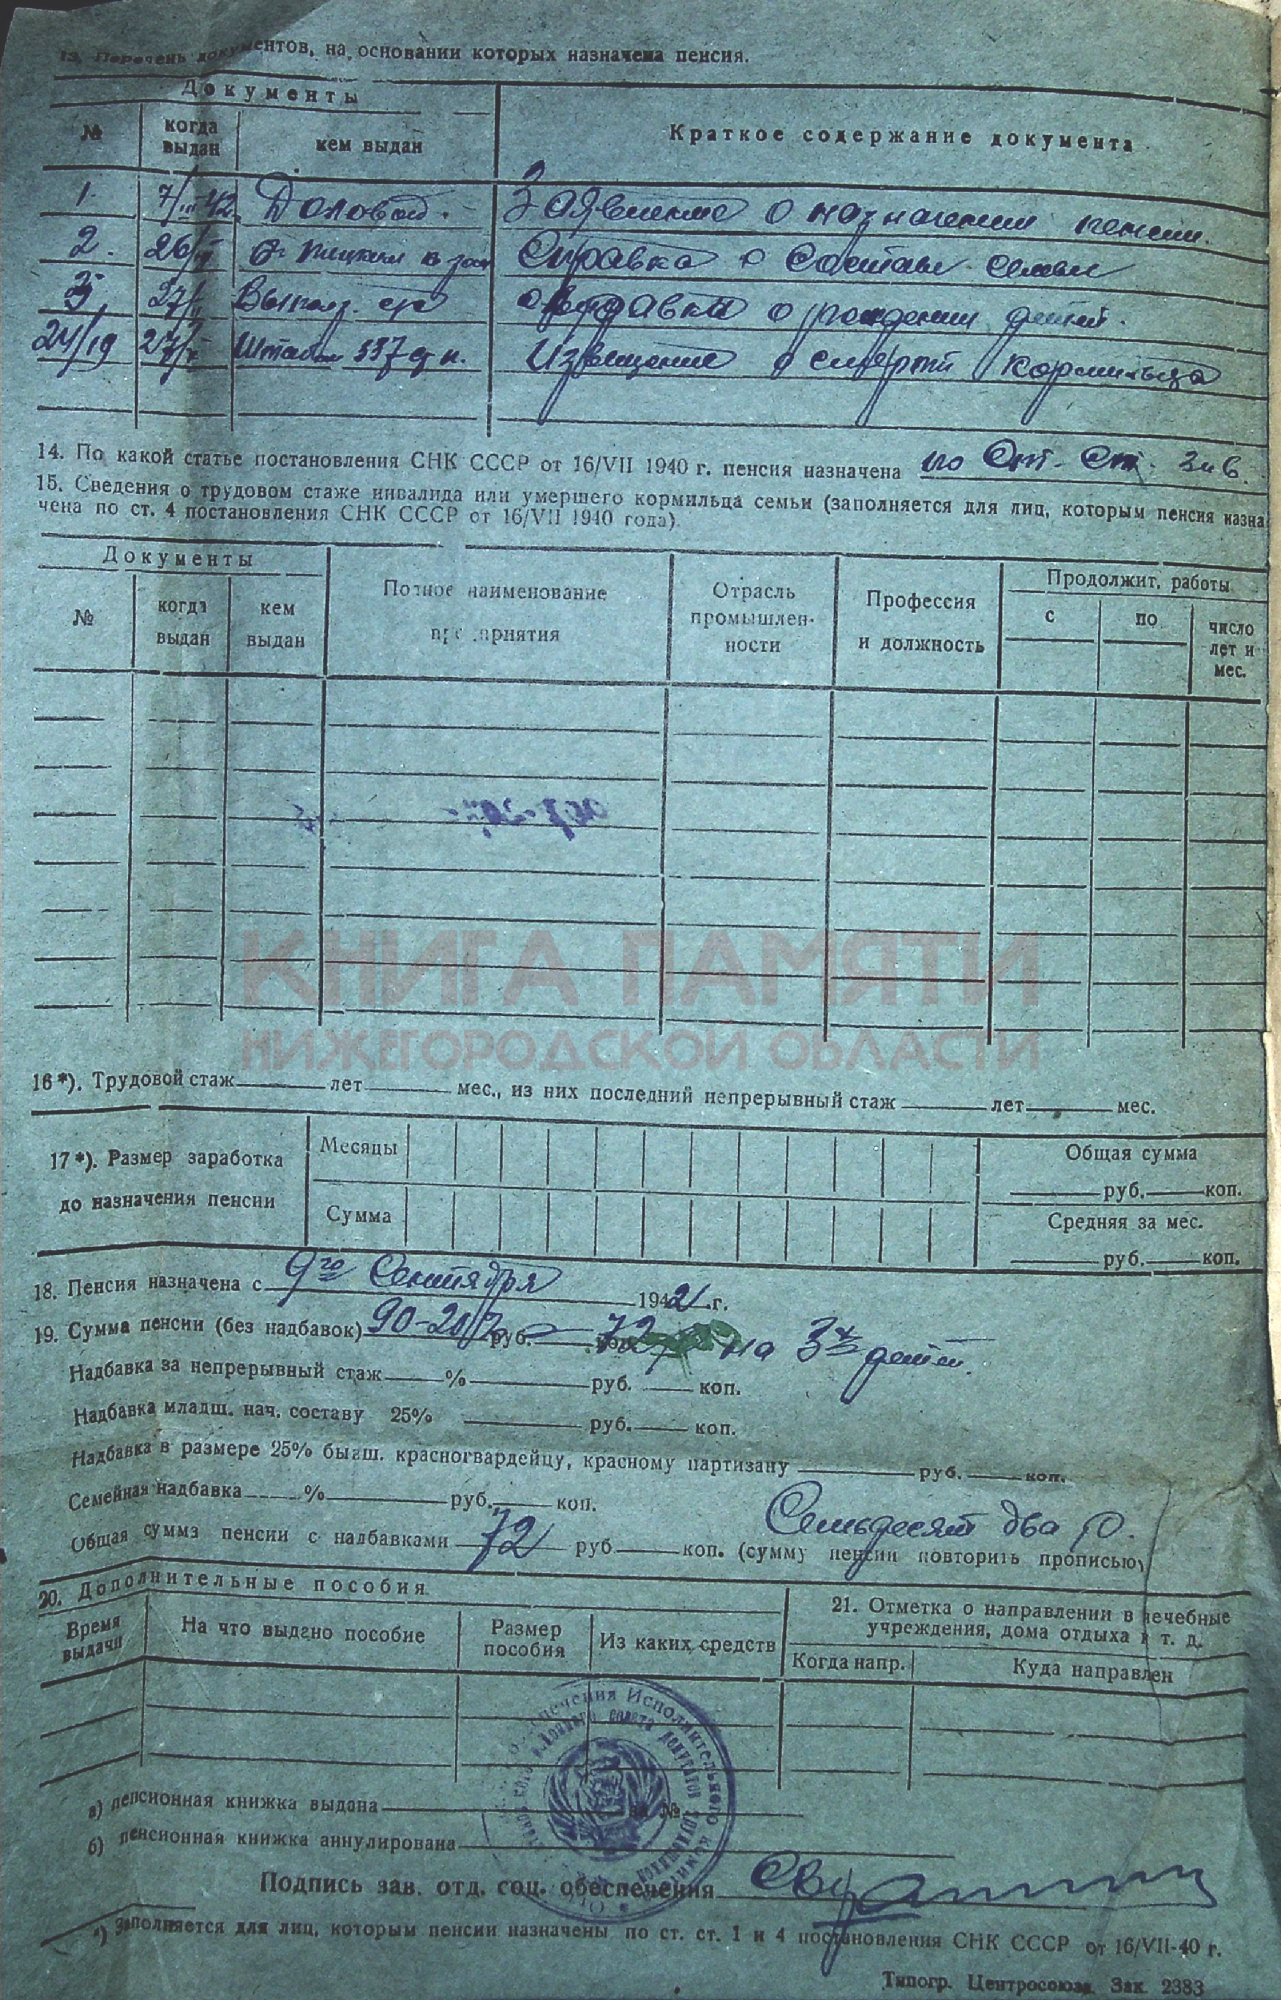 13. Перечень документов, на основании которых назначена пенсия.
Документы
№ когда выдан кем выдан Краткое содержание документа
1. 7/III 42 Заявление о назначении пенсии.
2. 26/ Справка о составе семьи
3 27/ справка о рождении детей.
24/19 27/ Штабом 337 сд н. Извещение о смерти кормильца
14. По какой статье постановления СНК СССР от 16/VII 1940 г. пенсия назначена по Ст. Ст. 3 и 6.
15. Сведения о трудовом стаже инвалида или умершего кормильца семьи (заполняется для лиц, которым пенсия назна
чена по ст. 4 постановления СНК СССР от 16/VII 1940 года).
Документы
№ когда выдан кем выдан
Полное наименование предприятия
Отрасль промышлен-
ности
Профессия и должность
Продолжит. работы
с по число лет и мес.
КНИГА ПАМЯТИ
НИЖЕГОРОДСКОЙ ОБЛАСТИ
16*). Трудовой стаж лет мес., из них последний непрерывный стаж лет мес.
17*). Размер заработка
до назначения пенсии
Месяцы
Сумма
Общая сумма
руб. коп.
Средняя за мес.
руб. коп.
18. Пенсия назначена с 9го Сентября 1942 г.
19. Сумма пенсии (без надбавок) 90-20 руб. 72 на 3х детей.
Надбавка за непрерывный стаж % руб. коп.
Надбавка младш. нач. составу 25% руб. коп.
Надбавка в размере 25% бывш. красногвардейцу, красному партизану руб. коп.
Семейная надбавка % руб. коп.
Семьдесят два р.
Общая сумма пенсии с надбавками 72 руб. коп. (сумму пенсии повторить прописью)
20. Дополнительные пособия.
Время выдачи На что выдано пособие Размер пособия Из каких средств
21. Отметка о направлении в лечебные
учреждения, дома отдыха и т. д.
Когда напр. Куда направлен
а) пенсионная книжка выдана за №
б) пенсионная книжка аннулирована
Подпись зав. отд. соц. обеспечения
*) Заполняется для лиц, которым пенсии назначены по ст. ст. 1 и 4 постановления СНК СССР от 16/VII-40 г.
Типогр. Центросоюза. Зак. 2383